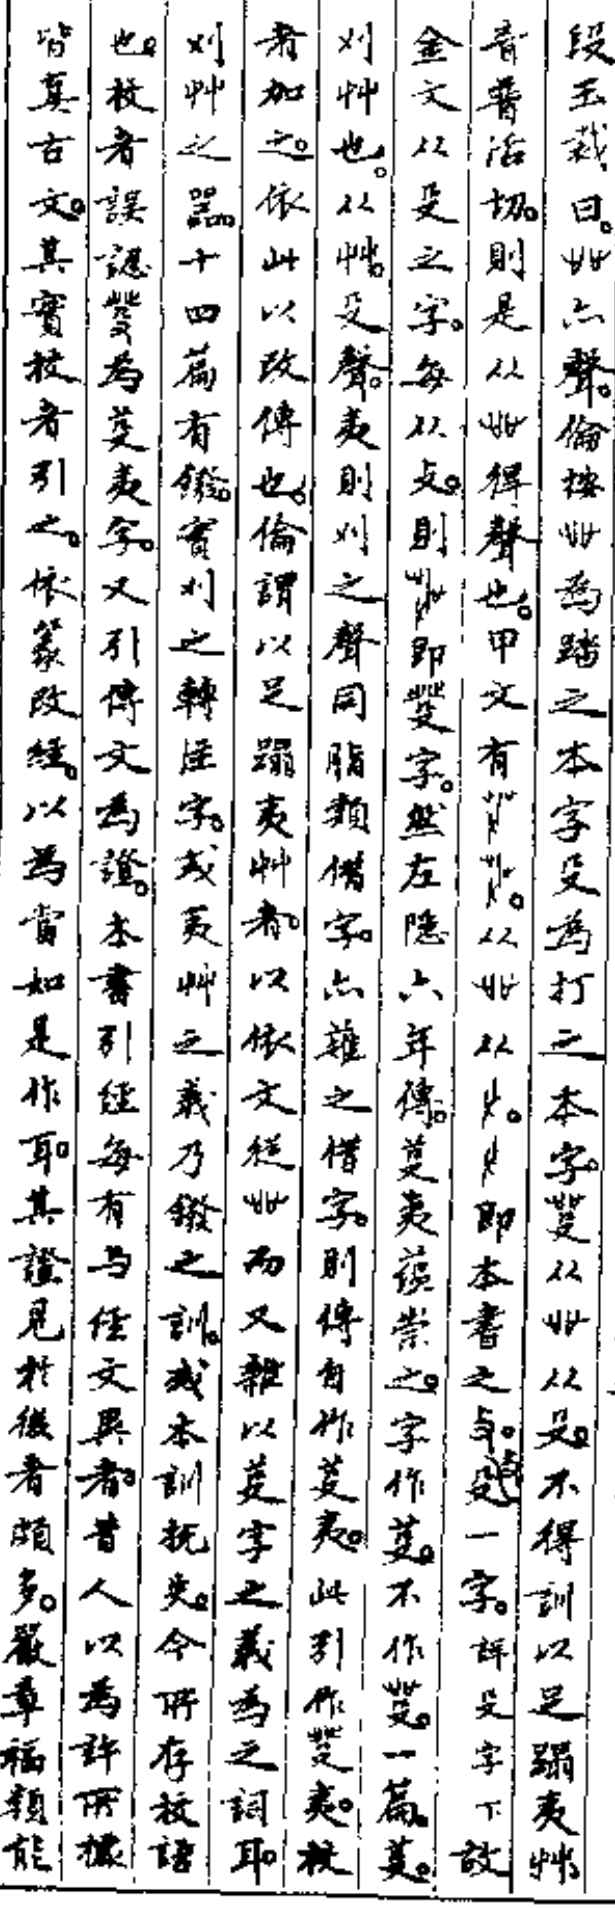 段玉裁曰。癶亦聲。倫按癶為蹋之本字殳為打之本字。癹从癶从殳。不得訓以足蹋夷艸。
音普活切。則是从癶得聲也。甲文有。从癶从。即本書之殳。殳一字。詳殳字下故
金文从殳之字。每从攴。則即癹字。然左隱六年傳。芟夷蘊崇之。字作芟。不作癹。一篇。芟。
刈艸也。从艸。殳聲。夷則刈之聲同脂類借字。亦薙之借字。則傳自作芟夷。此引作癹夷。校
者加之。依此以改傳也。倫謂以足蹋夷艸者。以依文從癶而又雜以芟字之義為之詞耳。
刈艸之器。十四篇有鏺。實刈之轉注字。或夷艸之義乃鏺之訓。或本訓捝失。今所存校語
也。校者誤認癹為芟夷字。又引傳文為證。本書引經每有与經文異者。昔人以為許所據
皆真古文。其實校者引之。依篆改經。以為當如是作耳。其證見於後者頗多。嚴章福頗能